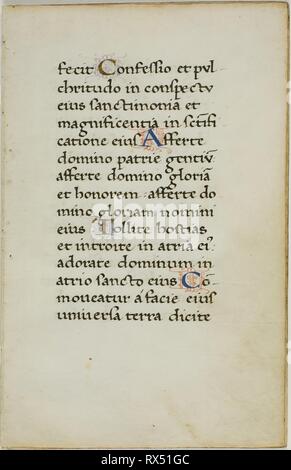 fecit Confessio et pul
chritudo in conspectu
eius sanctimonia et
magnificentia in sctīfi
catione eius Afferte
domino patrie gentiū
afferte domino gloriā
et honorem afferte do
mino gloriam nomini
eius Tollite hostias
et introite in atria ei9
adorate dominum in
atrio sancto eius Cō-
moveatur á facie eius
universa terra dicite
alamy
RX51GC
www.alamy.com